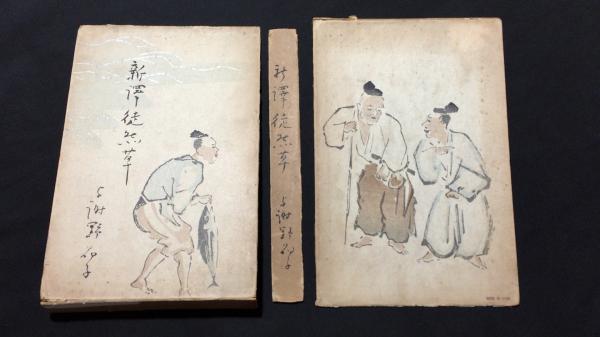 新譯徒然草
与謝野晶子
新譯徒然草
与謝野晶子